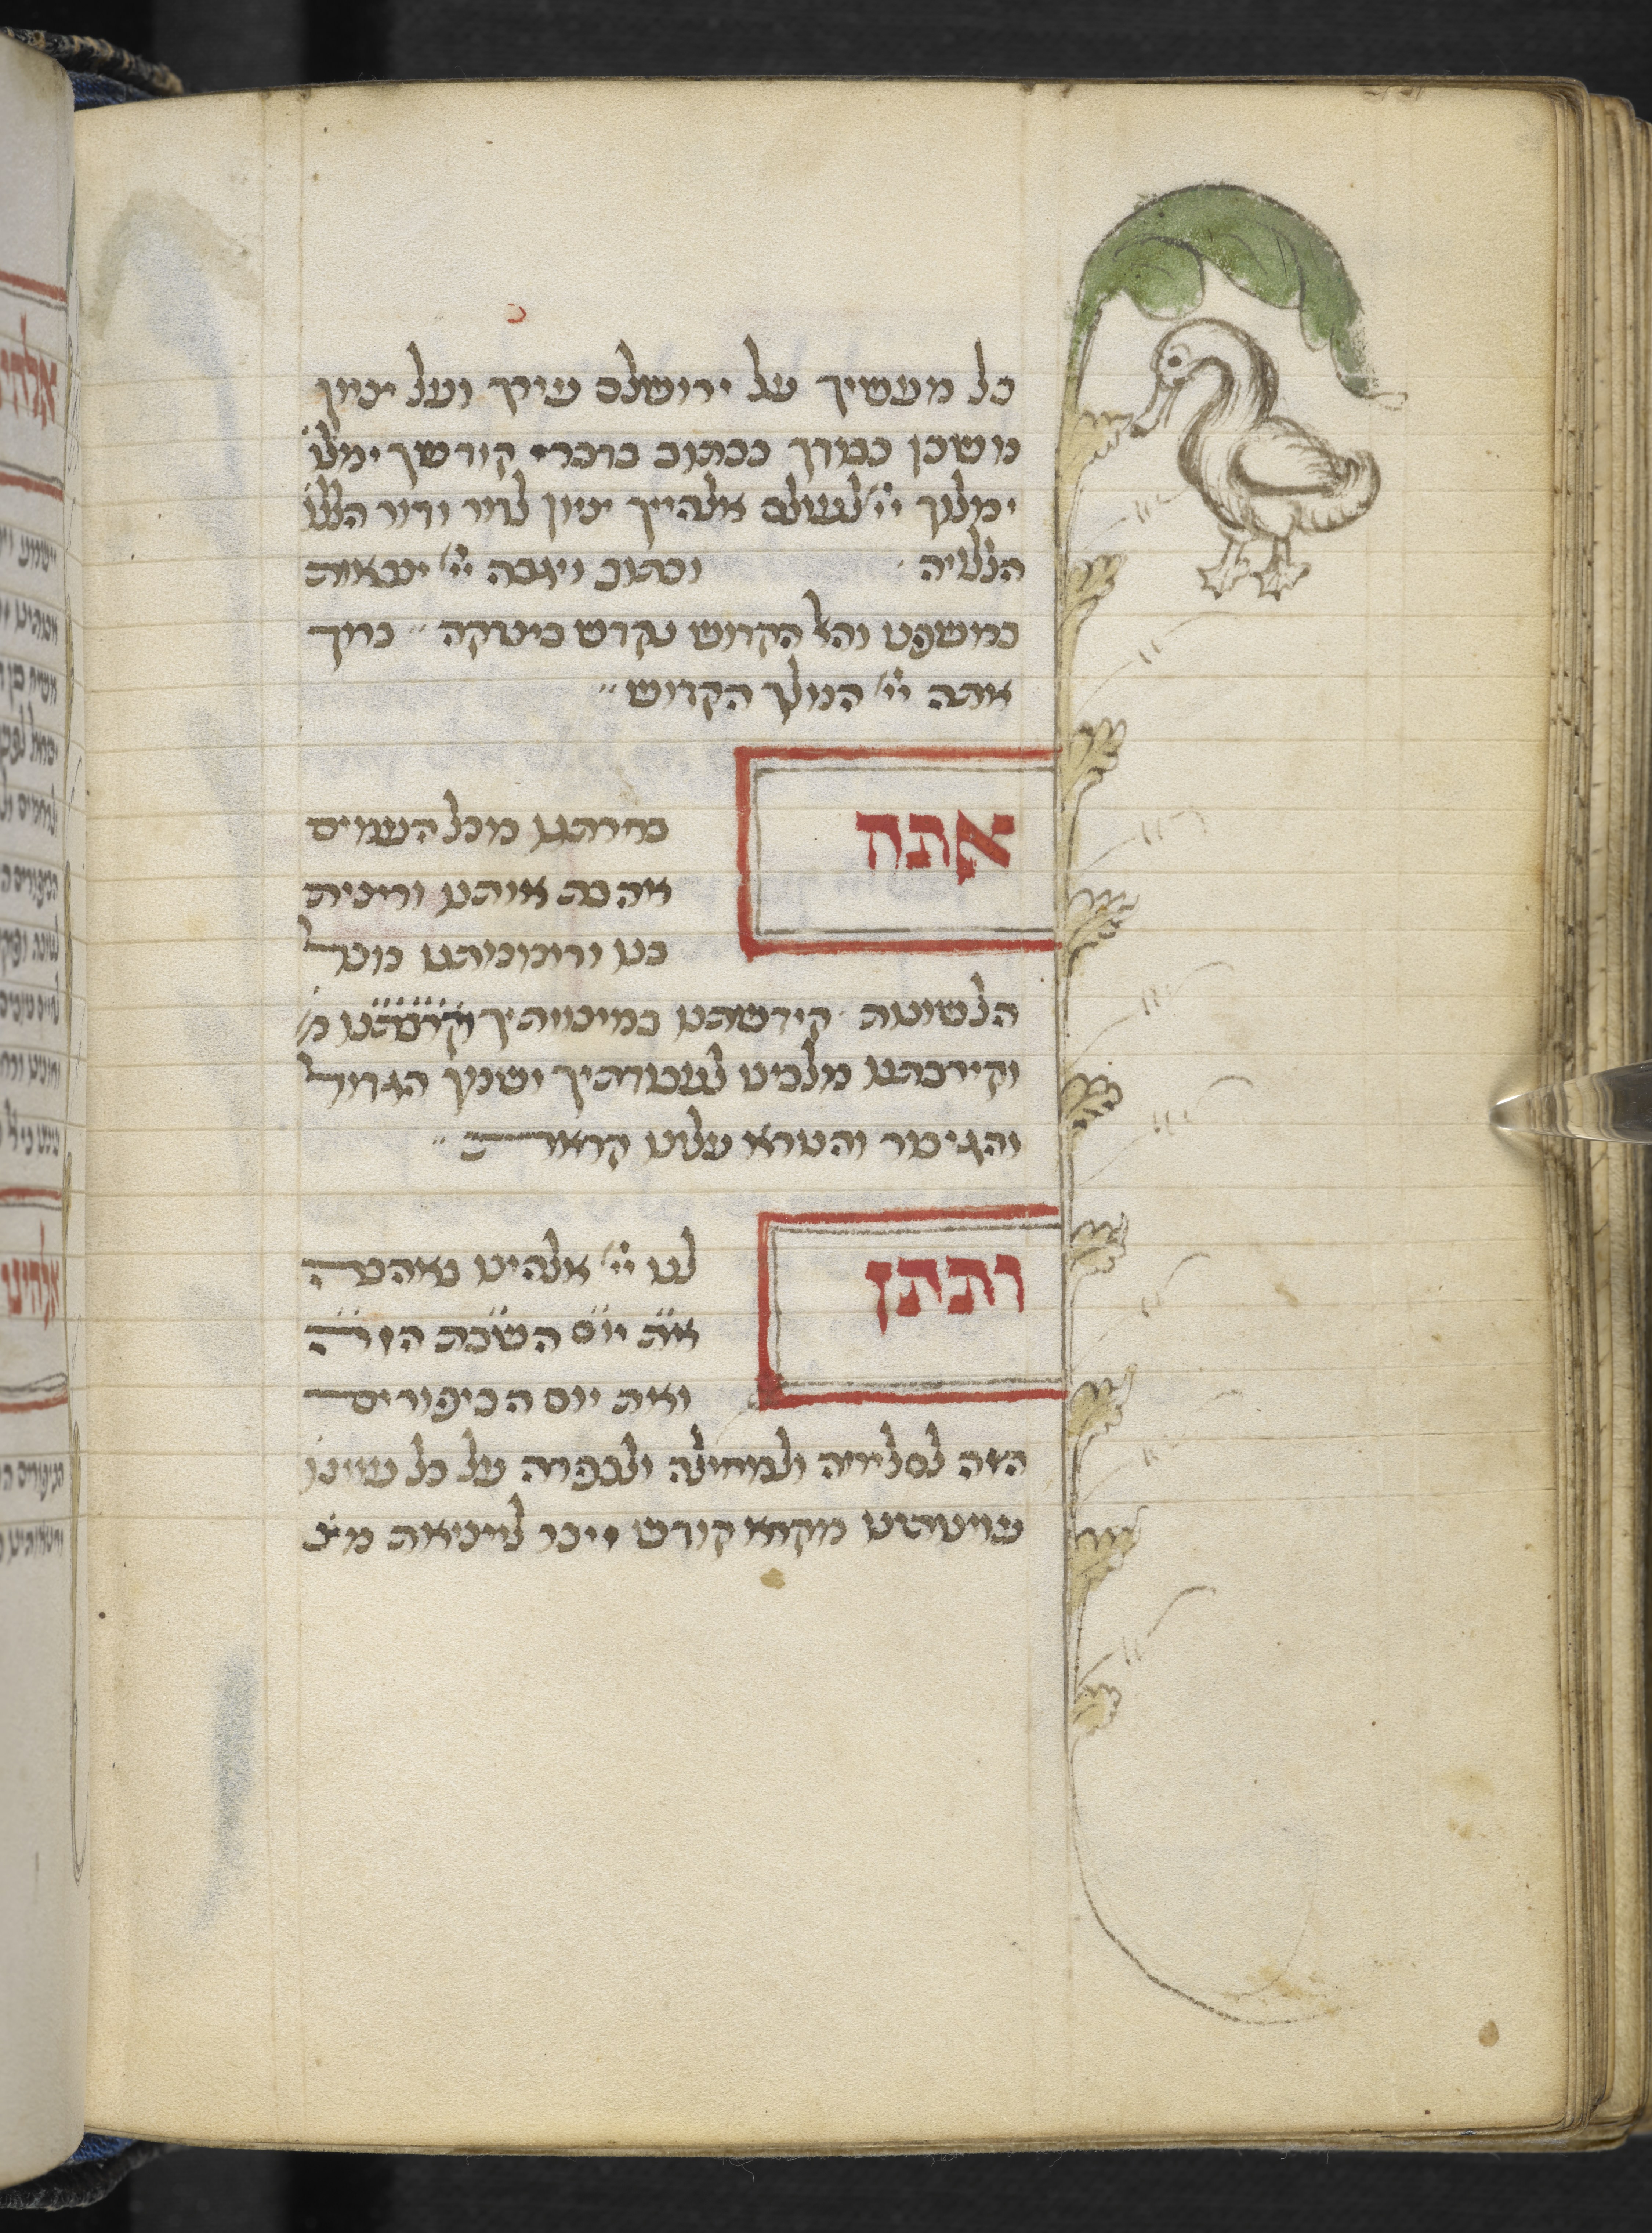 כל מעשיך על ירושלם עירך ועל ציון
משכן כבודך ככתוב בדברי קודשך ימלו
ימלוך יי לעולם אלהייך ציון לדור ודור הללו
הללויה וכתוב ויגבה יי צבאות
במשפט והאל הקדוש נקדש בצדקה ברוך
אתה יי המלך הקדוש
אתה בחרתנו מכל העמים
אהבת אותנו ורצית
בנו ורוממתנו מכל
הלשונות קידשתנו במצוותיך קרבתנו מ
וקירבתנו מלכינו לעבודתיך ושמך הגדול
והגיבור והנורא עלינו קראת
ותתן לנו יי אלהינו באהבה
את יום השבת הזה
ואת יום הכיפורים
הזה לסליחה ולמחילה ולכפרה על כל עווננו
עוונותינו מקרא קודש זיכר ליציאת מצ